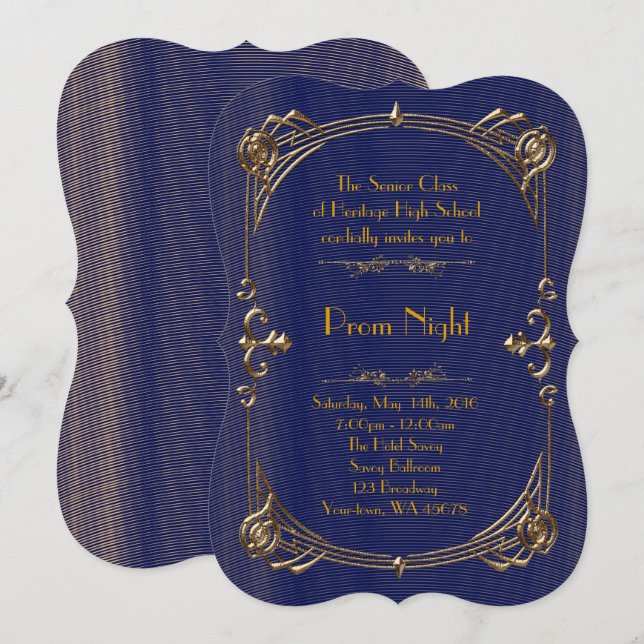 The Senior Class
of Heritage High School
cordially invites you to
Prom Night
Saturday, May 14th, 2016
7:00pm - 12:00am
The Hotel Savoy
Savoy Ballroom
123 Broadway
Your-town, WA 45678